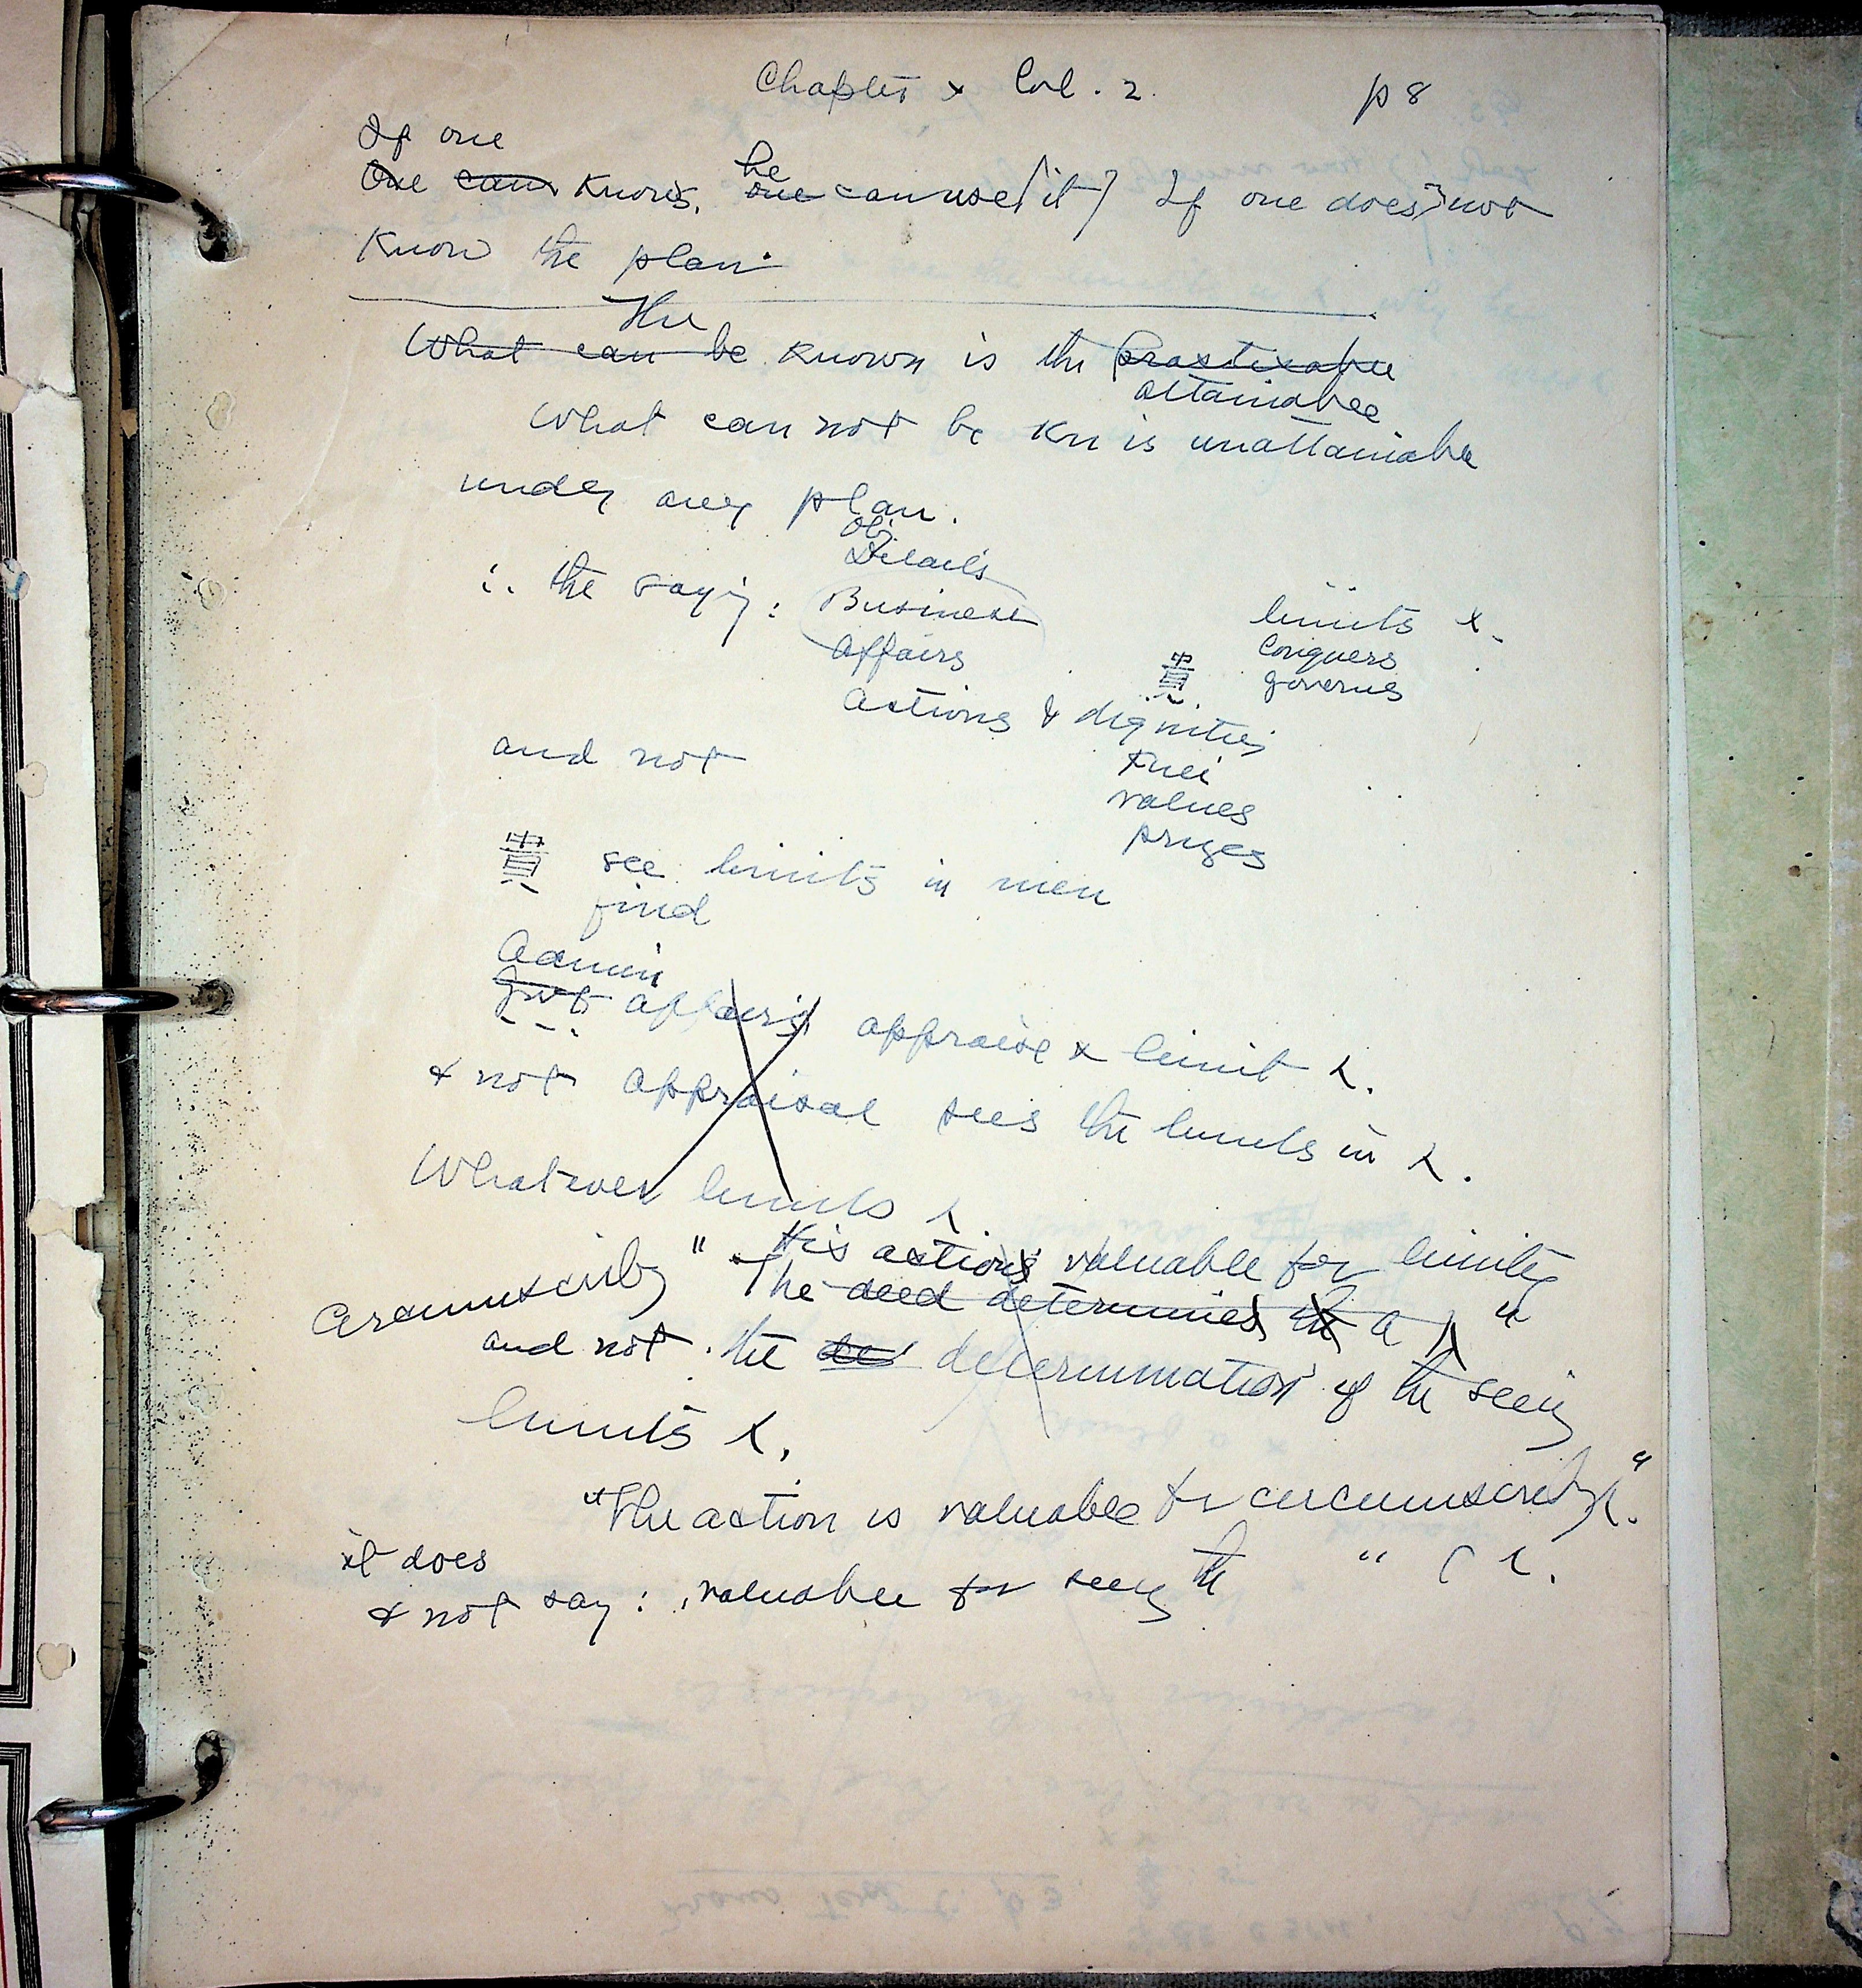 Chapter x Col. 2. p 8
If one
One can knows, he
one can use [it] If one does not
know the plan.
The
What can be known is the practixable
attainable
What can not be kn is unattainable
under any plan.
Obj
Details
∴ the saying: Business limits x.
Affairs 貴 Conquers
governs
Actions & dignities
and not Kuei
values
prizes
貴 see limits in men
find
Admin
Govt affairs appraise x limit 人.
& not appraisal sees the limits in 人.
Whatever limits 人.
His actions valuable for limiting
Circumscribing" "The deed determines the a 人"
and not the de determination of the seeing
limits 人.
"The action is valuable for circumscribing 人."
it does
& not say: valuable for seeing the " ( 人.